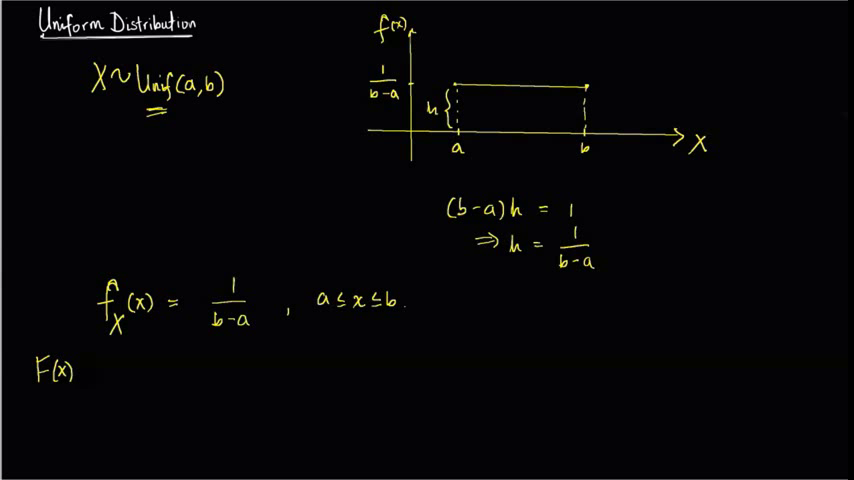 Uniform Distribution
X ~ Unif(a,b)
f(x)
1/(b-a)
h
a
b
X
(b-a)h = 1
⇒ h = 1/(b-a)
f_X(x) = 1/(b-a) , a ≤ x ≤ b.
F(x)